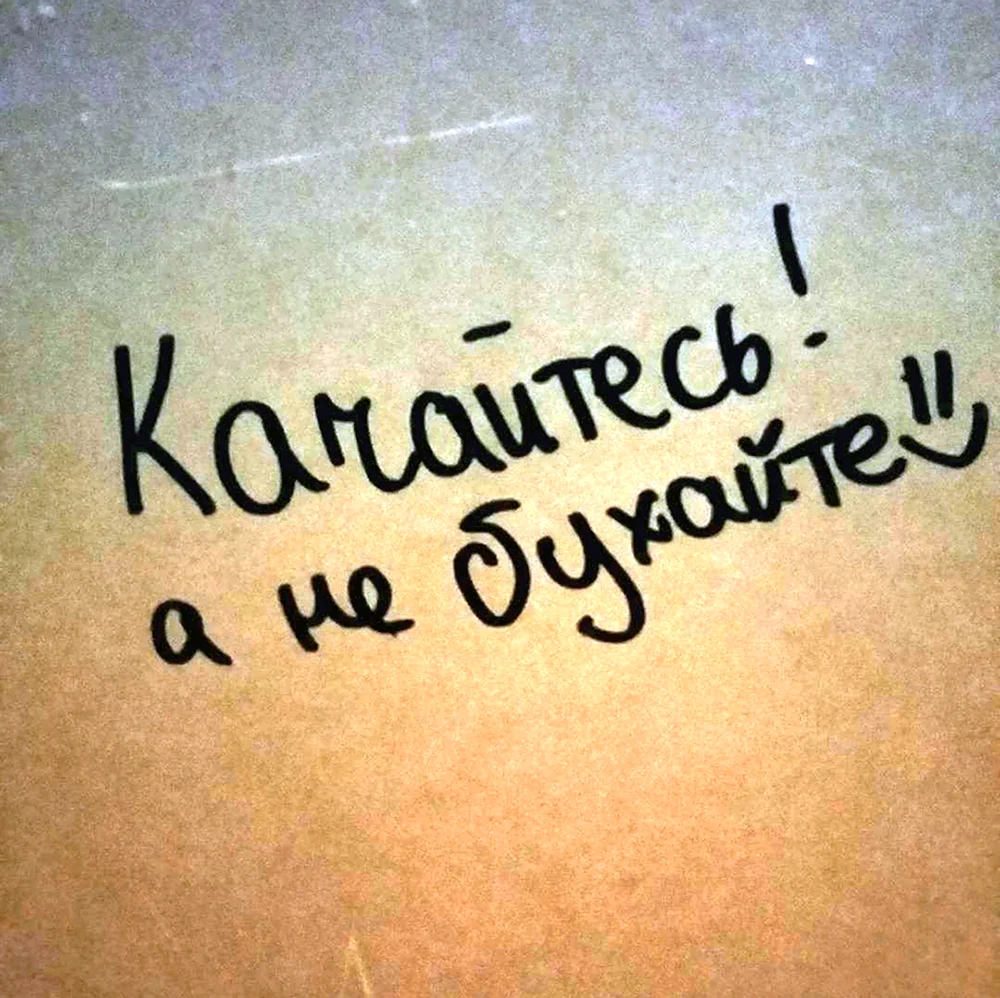 Качайтесь!
а не бухайте